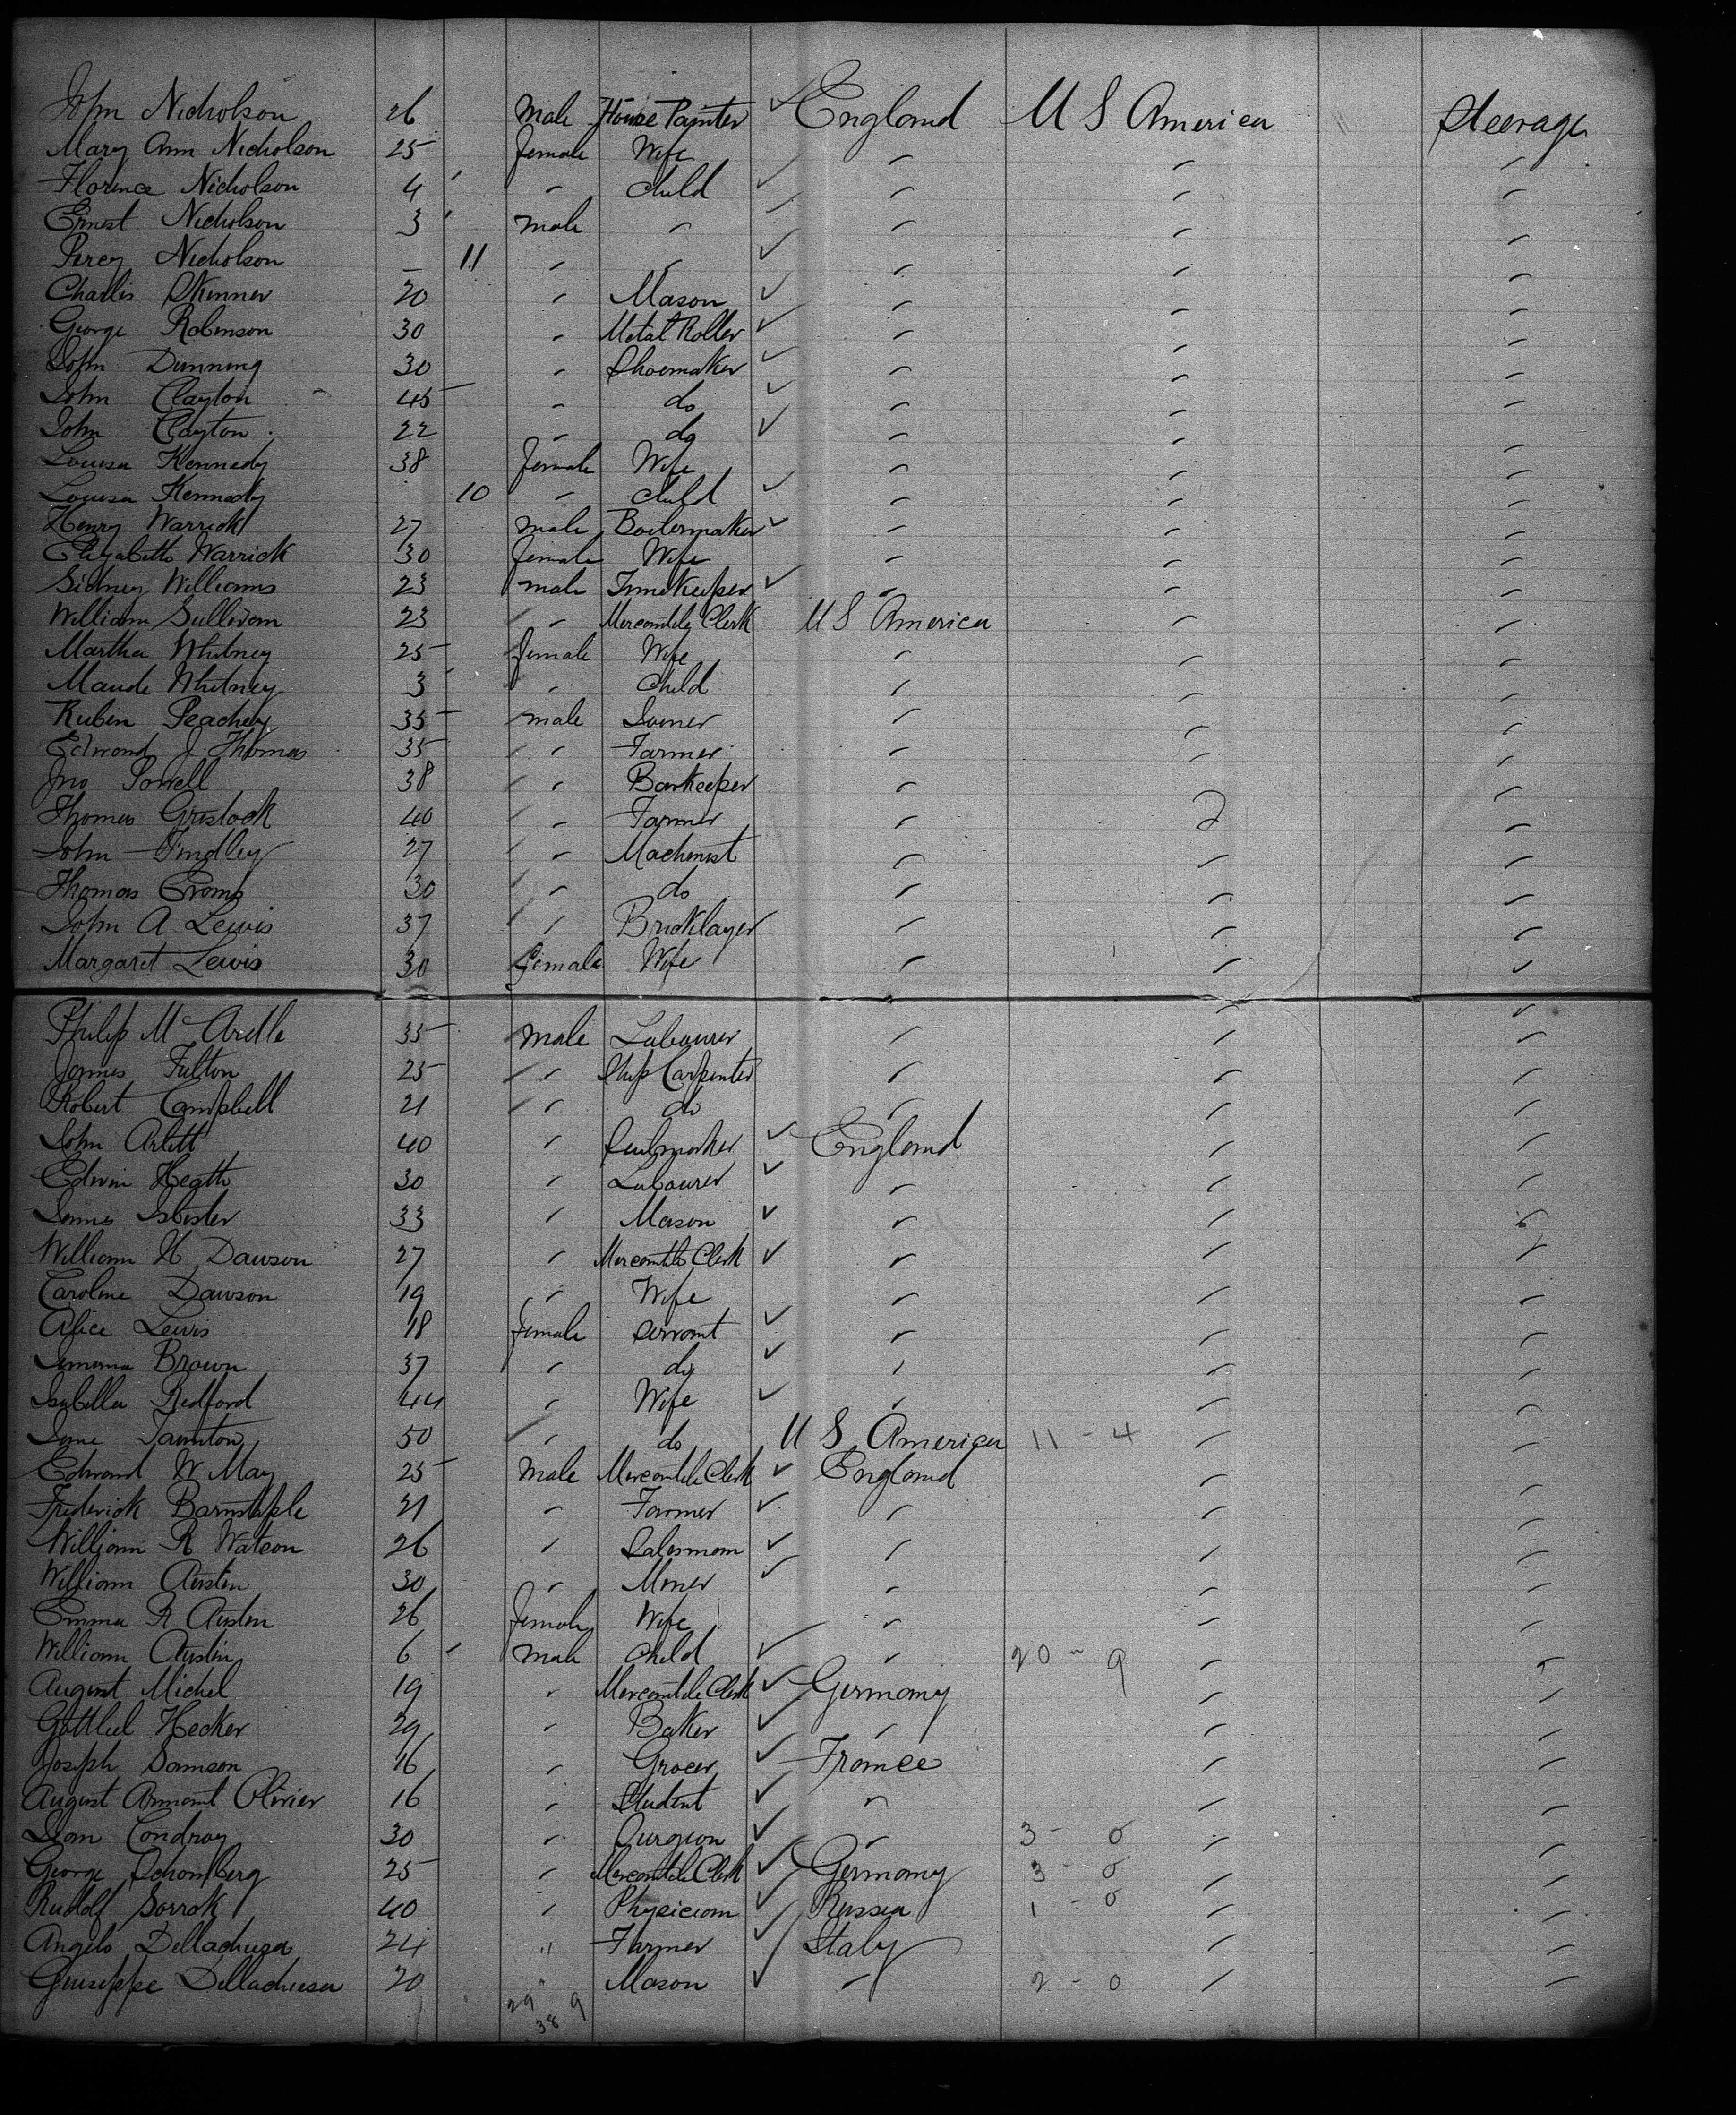 John Nicholson 26 Male House Painter ✓ England U S America Steerage
Mary Ann Nicholson 25 female Wife " " "
Florence Nicholson 4 " Child ✓ " " "
Ernest Nicholson 3 male " " " "
Percy Nicholson – 11 " " ✓ " " "
Charles Skinner 20 " Mason ✓ " " "
George Robinson 30 " Metal Roller ✓ " " "
John Dunning 30 " Shoemaker ✓ " " "
John Clayton 45 " do ✓ " " "
John Clayton 22 " do ✓ " " "
Louisa Kennedy 38 female Wife " " "
Louisa Kennedy 10 " child ✓ " " "
Henry Warrick 27 male Boilermaker ✓ " " "
Elizabeth Warrick 30 female Wife " " "
Sidney Williams 23 male Timekeeper ✓ " " "
William Sullivan 23 " Mercantile Clerk U S America " "
Martha Whitney 25 female Wife " " "
Maude Whitney 3 " Child " " "
Ruben Peachey 35 male " " "
Edmond J Thomas 35 " Farmer " " "
Jno Powell 38 " Barkeeper " " "
Thomas Gristock 40 " Farmer " " "
John Findley 27 " Machinist " " "
Thomas 30 " do " " "
John A Lewis 37 " Bricklayer " " "
Margaret Lewis 30 female Wife " " "
Philip Mc Ardle 35 male Labourer " " "
James Fulton 25 " Ship Carpenter " " "
Robert Campbell 21 " do " " "
John Arlett 40 " Sailmaker ✓ England " "
Edwin Heath 30 " Labourer ✓ " " "
James Isbister 33 " Mason ✓ " " "
William H Dawson 27 " Mercantile Clerk ✓ " " "
Caroline Dawson 19 " Wife " " "
Alice Lewis 18 female Servant ✓ " " "
Jemima Brown 37 " do ✓ " " "
Isabella Redford 44 " Wife ✓ " " "
Jane Taunton 50 " do U S America 11 - 4 " "
Edward W May 25 male Mercantile Clerk ✓ England " "
Frederick Barnstaple 21 " Farmer ✓ " " "
William R Watson 26 " Salesman ✓ " " "
William Austin 30 " Miner ✓ " " "
Emma R Austin 26 female Wife " " "
William Austin 6 male Child ✓ " 20 - 9 " "
August Michel 19 " Mercantile Clerk ✓ Germany " "
Gottliel Hecker 29 " Baker ✓ " " "
Joseph Samson 16 " Grocer ✓ France " "
August Armant Olivier 16 " Student ✓ " " "
Condray 30 " Surgeon ✓ " 3 - 0 " "
George Schomberg 25 " Mercantile Clerk ✓ Germany 3 - 0 " "
Rudolf Sorrok 40 " Physician ✓ Russia 1 - 0 " "
Angelo Dellachiesa 24 " Farmer ✓ Italy " "
Giuseppe Dellachiesa 20 " Mason ✓ " 2 - 0 " "
29 9
38